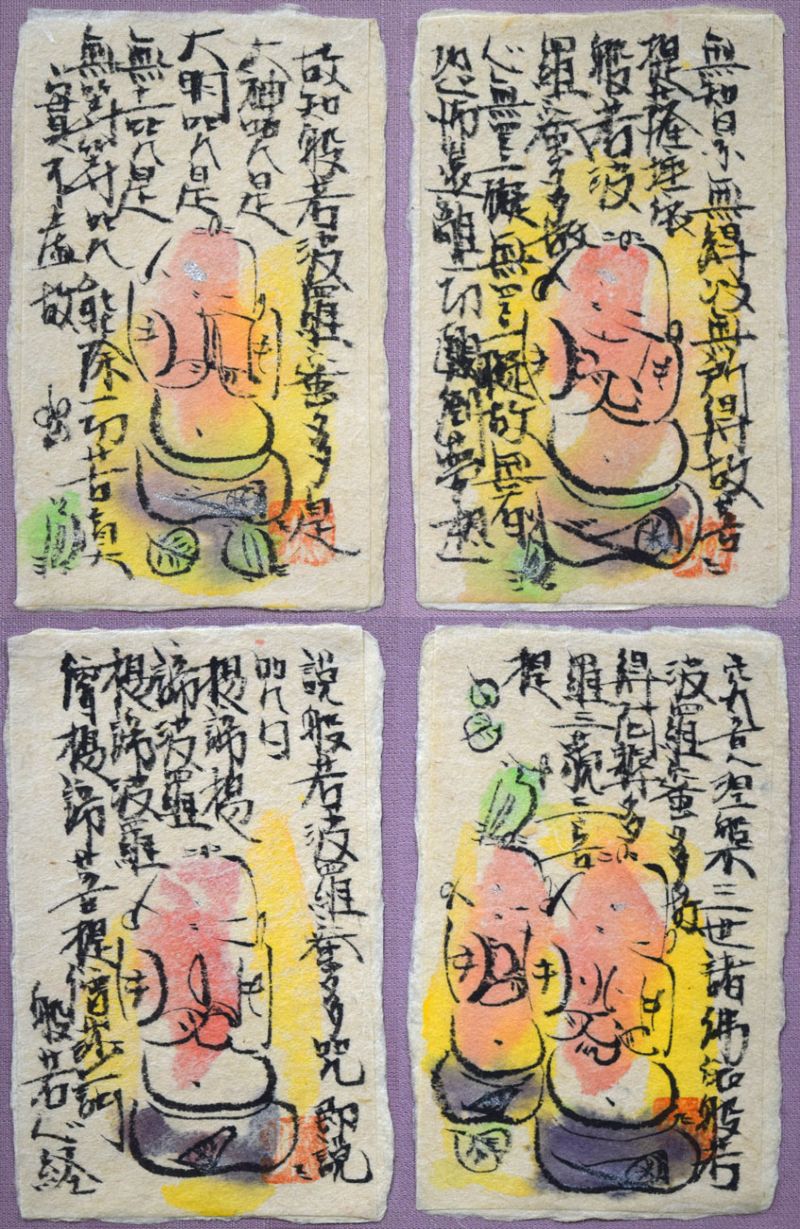 無智亦無得以無所得故菩
提薩埵依
般若波
羅蜜多故
心無罣礙無罣礙故無有
恐怖遠離一切顛倒夢想
究竟涅槃三世諸佛依般若
波羅蜜多故
得阿耨多
羅三藐三菩
提
故知般若波羅蜜多是
大神咒是
大明咒是
無上咒是
無等等咒能除一切苦真
實不虚故
説般若波羅蜜多咒即説
咒曰
揭諦揭
諦波羅
揭諦波羅
僧揭諦菩提僧莎訶
般若心経